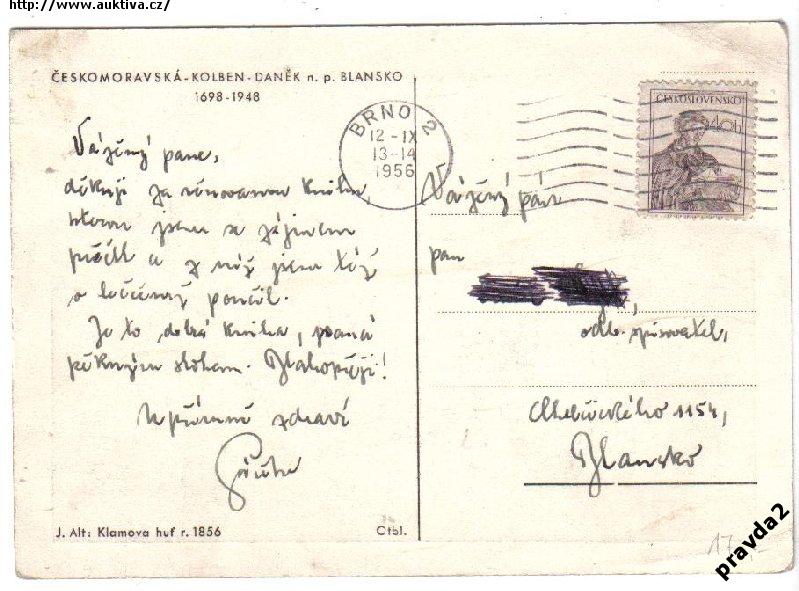 http://www.auktiva.cz/
ČESKOMORAVSKÁ-KOLBEN-DANĚK n. p. BLANSKO
1698-1948
Vážený pane,
děkuji za věnovanou knihu,
kterou jsem se zájmem
přečetl a z níž jsem též
o leččems poučil.
Je to dobrá kniha, psaná
pěkným slohem. Blahopřeji!
Upřímně zdraví
J. Alt: Klamova huť r. 1856
Ctbl.
BRNO 2
12-IX
13-14
1956
ČESKOSLOVENSKO
40h
Vážený pán
pan
odb. spisovatel,
1154,
Blansko
17,-
pravda2